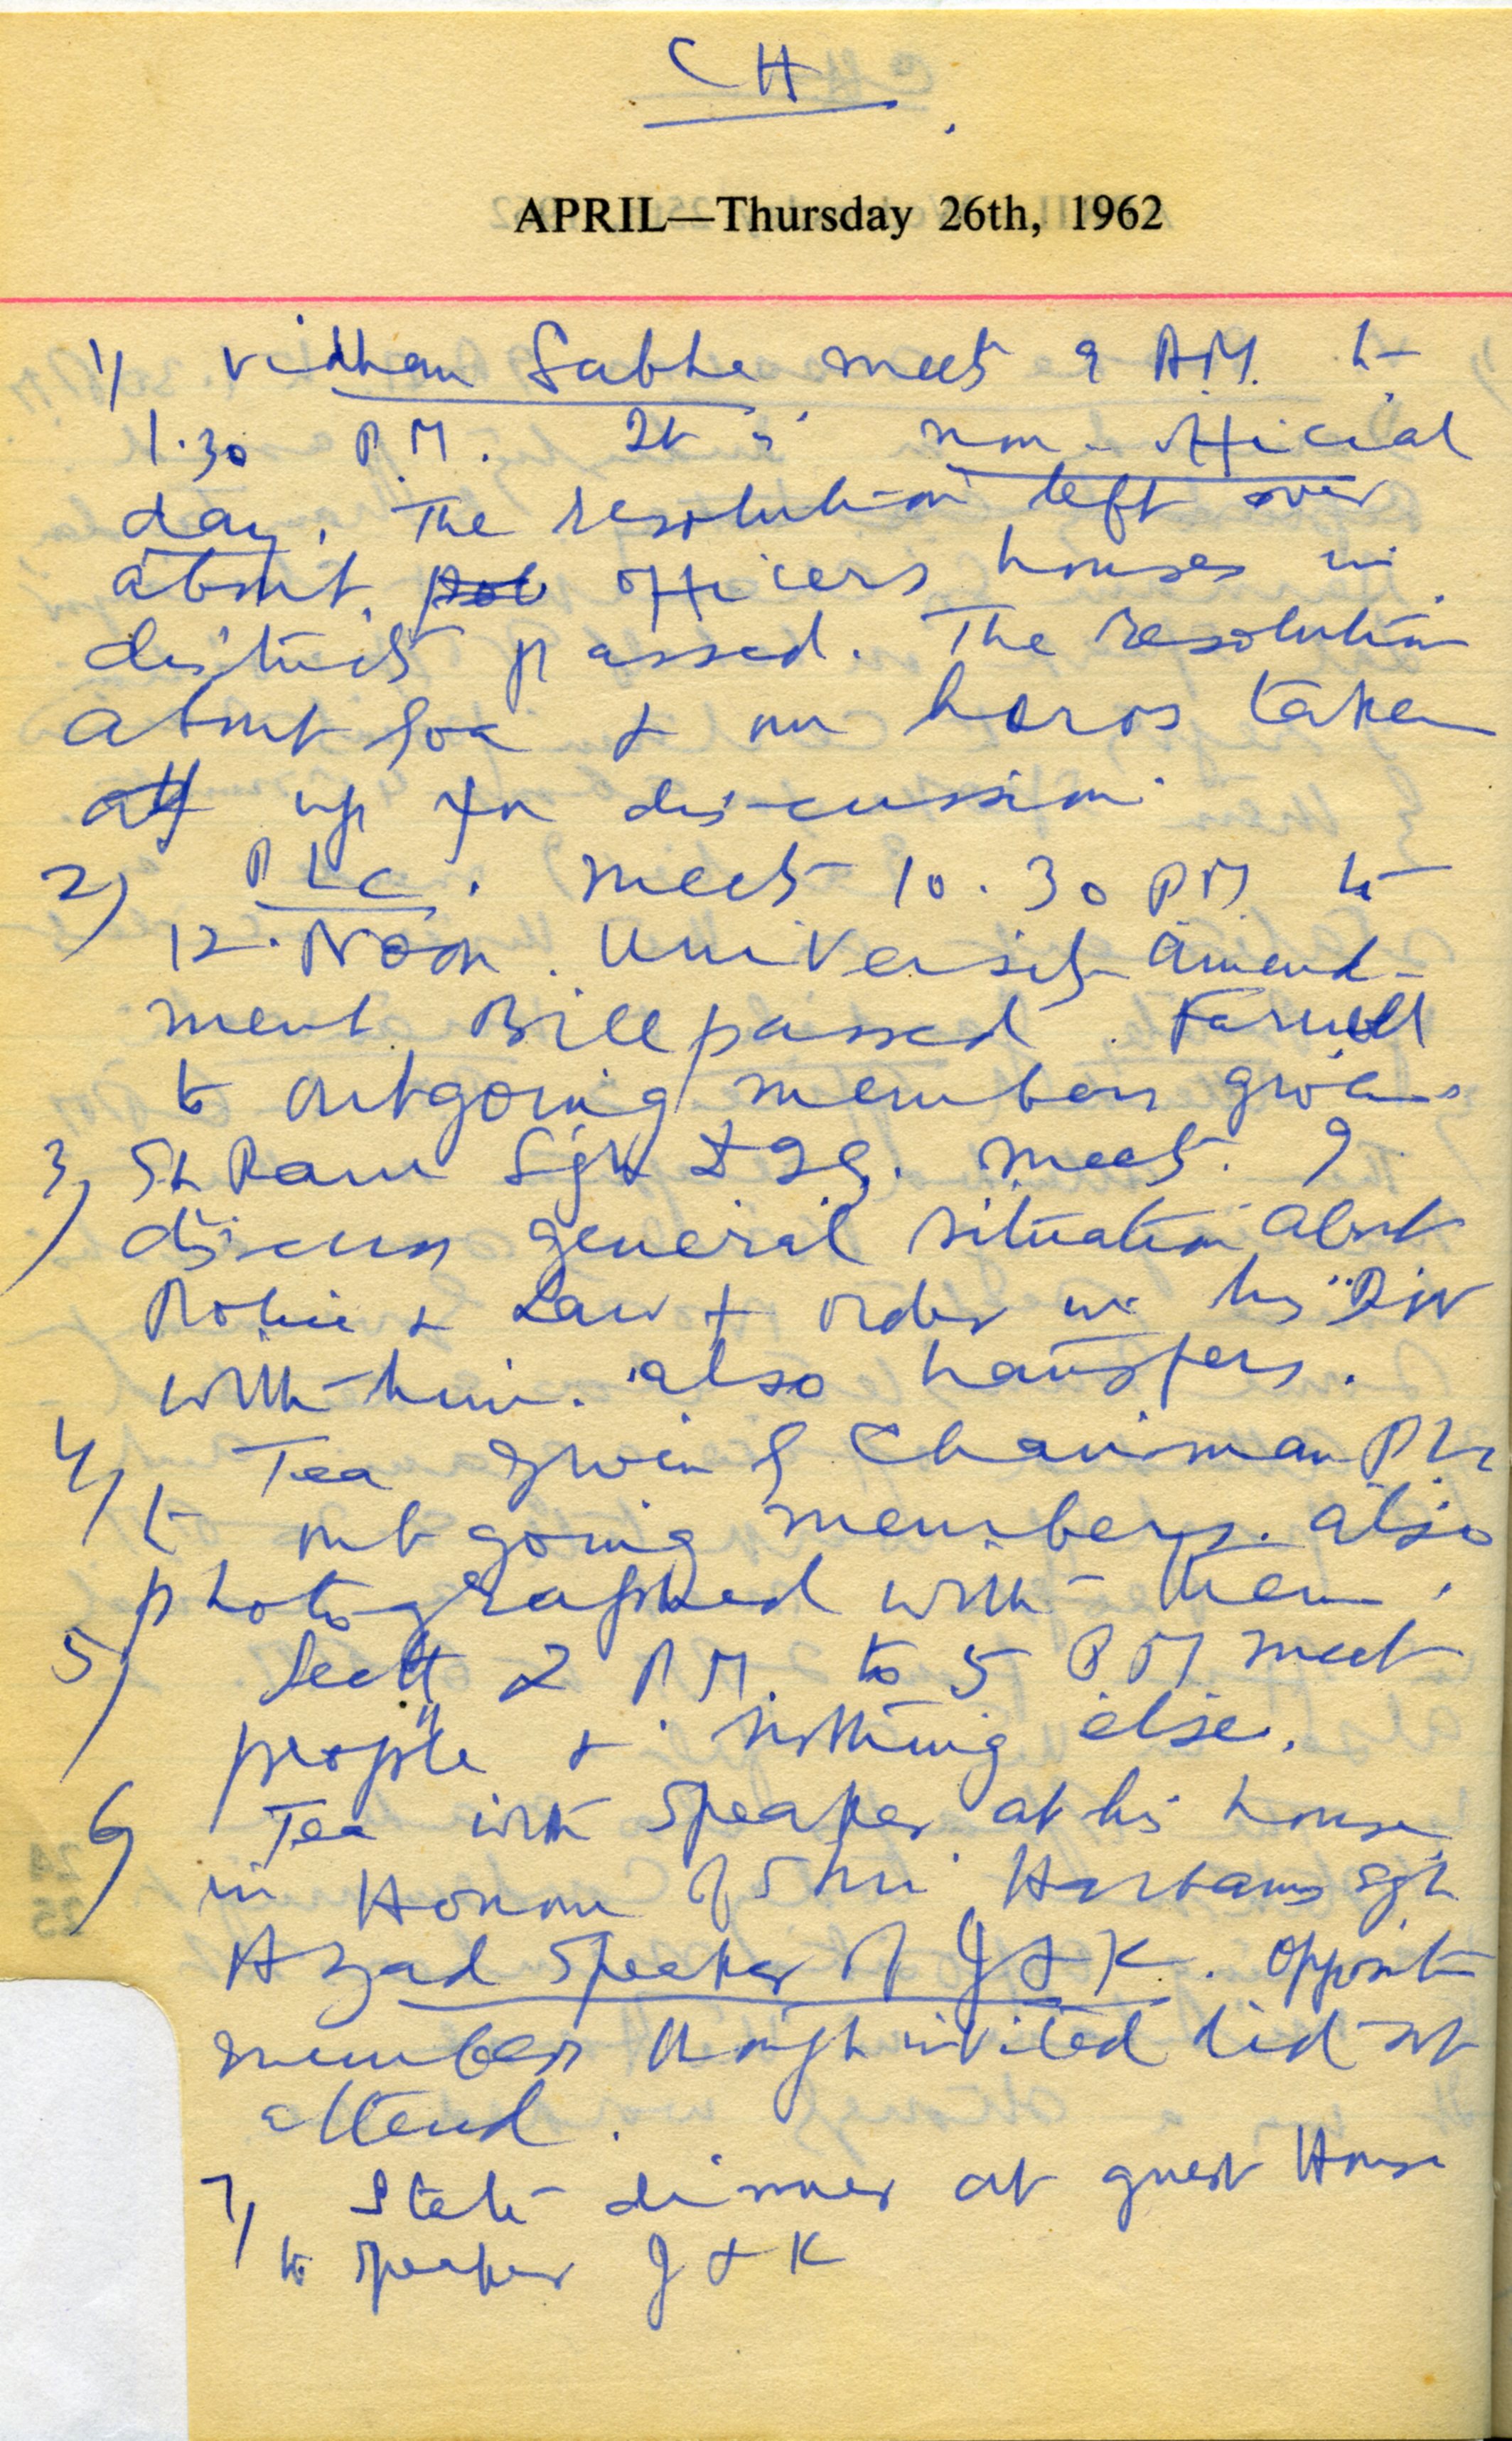 CH
APRIL—Thursday 26th, 1962
1) Vidhan Sabha meets 9 A.M. to
1.30 P.M. It is non-official
day. The resolution left over
about officers houses in
districts passed. The resolution
about Goa & our heros taken
up for discussion.
2) P L C. meets 10.30 PM to
12. Noon. University amend-
ment Bill passed. Farwell
to outgoing members given.
3) Sh Ram Sgh DIG. meets. I
discuss general situation about
Police & Law & order in his Div
with him. also transfers.
4) Tea given by Chairman PLC
to outgoing members. also
photographed with them.
5) Sectt 2 P.M. to 5 P.M meet
people & nothing else.
6) Tea with Speaker at his house
in Honour of Shri Harbans Sgh
Azad Speaker of J & K. opposite
members though invited did not
attend.
7) State dinner at guest House
to Speaker J & K